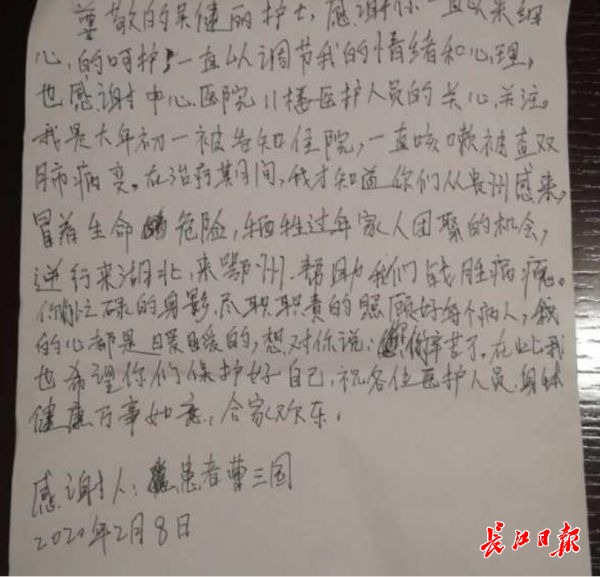 尊敬的吴健丽护士,感谢你一直以来细
心,的呵护,一直以调节我的情绪和心理,
也感谢中心医院11楼医护人员的关心关注。
我是大年初一被告知住院,一直咳嗽被查双
肺病变。在治疗期间,我才知道你们从贵州感来,
冒着生命危险,牺牲过年家人团聚的机会,
逆行来湖北,来鄂州.帮助我们战胜病魔。
你忙碌的身影,尽职职责的照顾好每个病人,我
的心都是暖暖的,想对你说:你辛苦了。在此我
也希望你们保护好自己,祝各位医护人员,身体
健康万事如意,合家欢乐.
感谢人:患者曹三国
2020年2月8日
长江日报